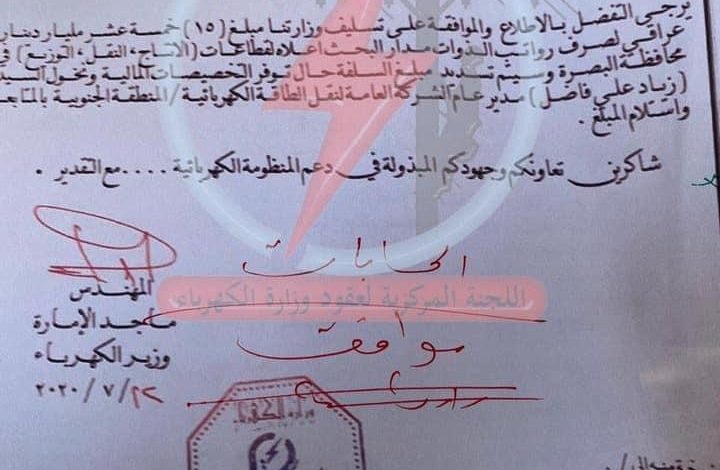 يرجى التفضل بالاطلاع والموافقة على تسليف وزارتنا مبلغ (١٥) خمسة عشر مليار دينار
عراقي لصرف رواتب الذوات مدار البحث اعلاه لقطاعات (الانتاج، النقل، التوزيع) في
محافظة البصرة وسيتم تسديد مبلغ السلفة حال توفر التخصيصات المالية ونخول السيد
(زياد علي فاضل) مدير عام الشركة العامة لنقل الطاقة الكهربائية / المنطقة الجنوبية بالمتابعة
واستلام المبلغ .
شاكرين تعاونكم وجهودكم المبذولة في دعم المنظومة الكهربائية .... مع التقدير .
الحسابات
اللجنة المركزية لعقود وزارة الكهرباء
موافق
المهندس
ماجد الإمارة
وزير الكهرباء
٢٠٢٠/٧/٢٢
وزارة الكهرباء